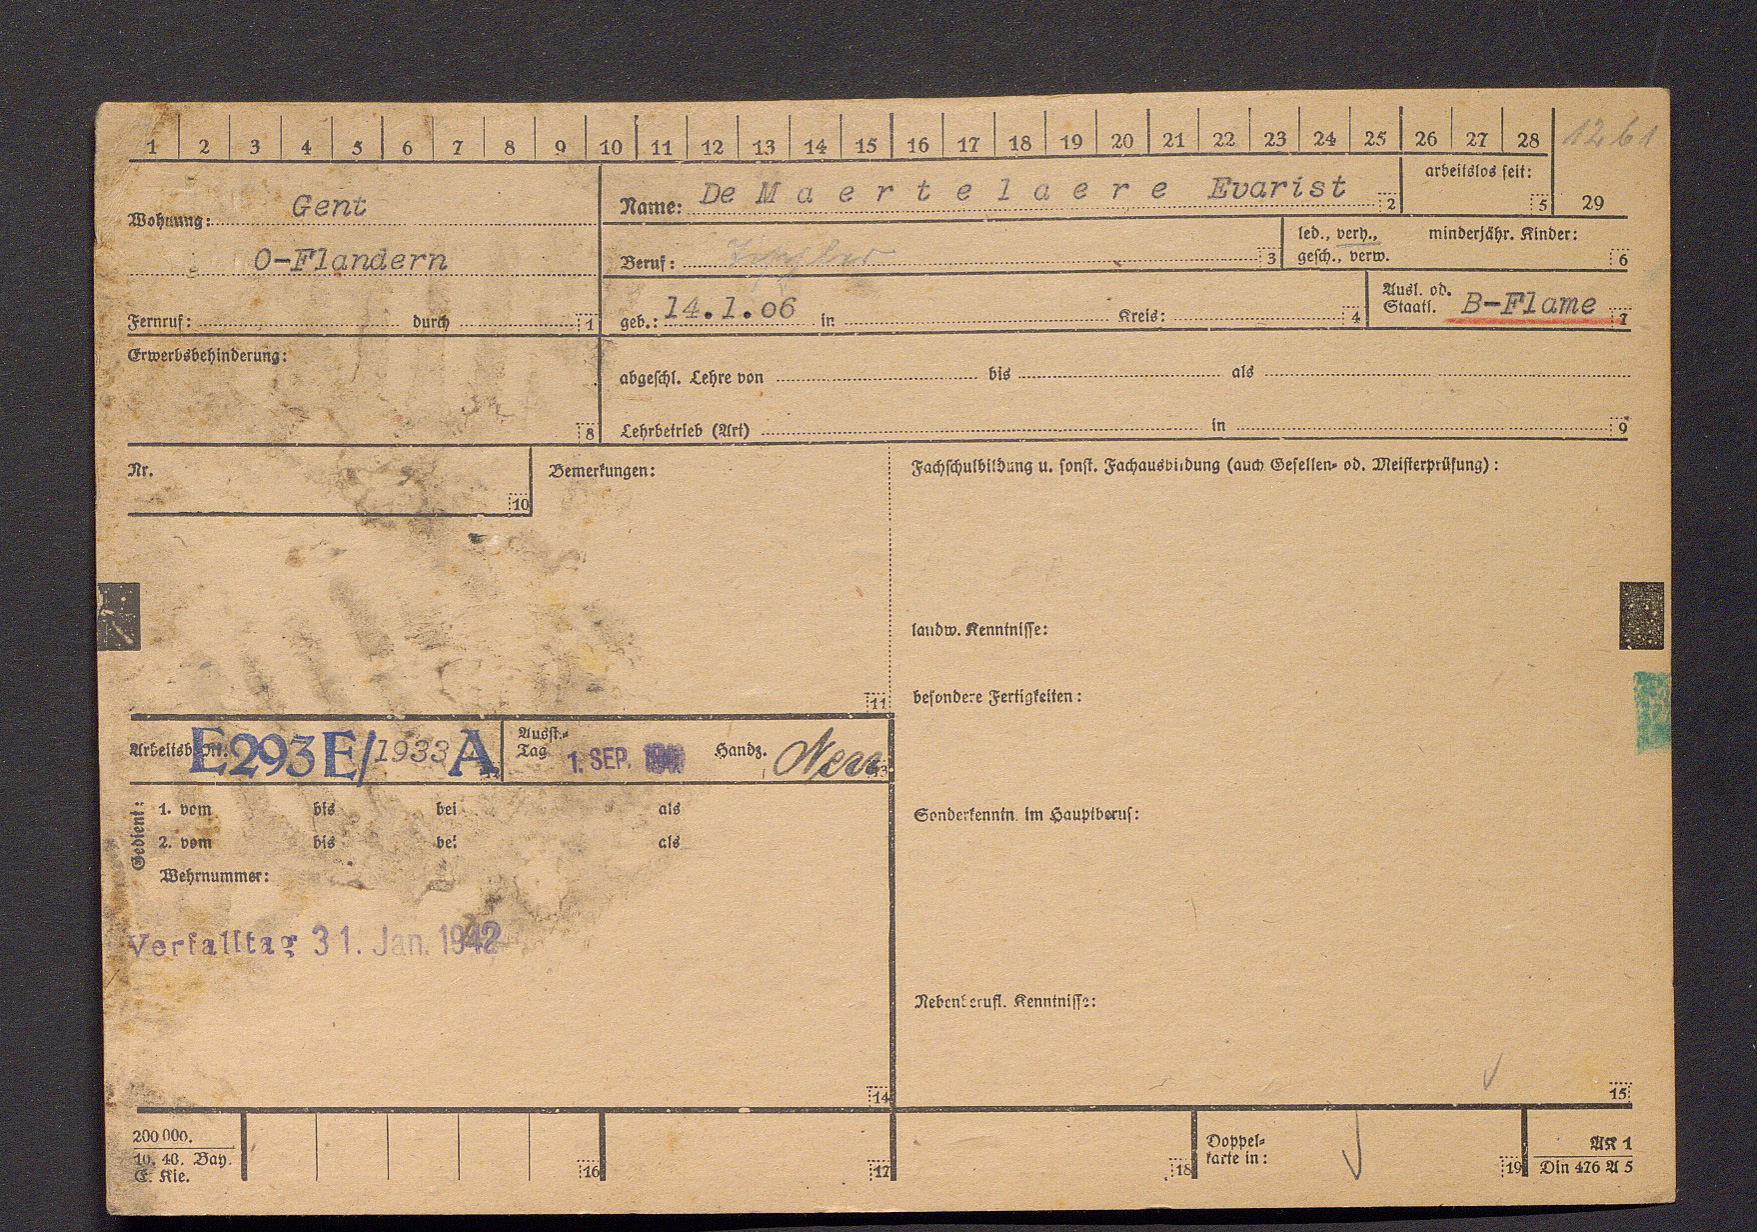 1 2 3 4 5 6 7 8 9 10 11 12 13 14 15 16 17 18 19 20 21 22 23 24 25 26 27 28 1261
Wohnung: Gent
O-Flandern
Fernruf: durch 1
Name: De Maertelaere Evarist 2
arbeitslos seit: 5 29
Beruf: 3
led., verh., minderjähr. Kinder:
gesch., verw. 6
geb.: 14.1.06 in Kreis: 4
Ausl. od.
Staatl. B-Flame 7
Erwerbsbehinderung:
8
abgeschl. Lehre von bis als
Lehrbetrieb (Art) in 9
Nr.
10
Bemerkungen:
11
Fachschulbildung u. sonst. Fachausbildung (auch Gesellen- od. Meisterprüfung):
landw. Kenntnisse:
besondere Fertigkeiten:
Arbeitsb.-Nr. E293E/1933 A
Ausst.-
Tag 1. SEP. Handz.
Gedient:
1. vom bis bei als
2. vom bis bei als
Wehrnummer:
Sonderkenntn. im Hauptberuf:
Verfalltag 31. Jan. 1942
Nebenberufl. Kenntnisse:
14
15
200 000.
10. 40. Bay.
E. Kie.
16
17
18
Doppel-
karte in:
19
AK 1
Din 476 A 5